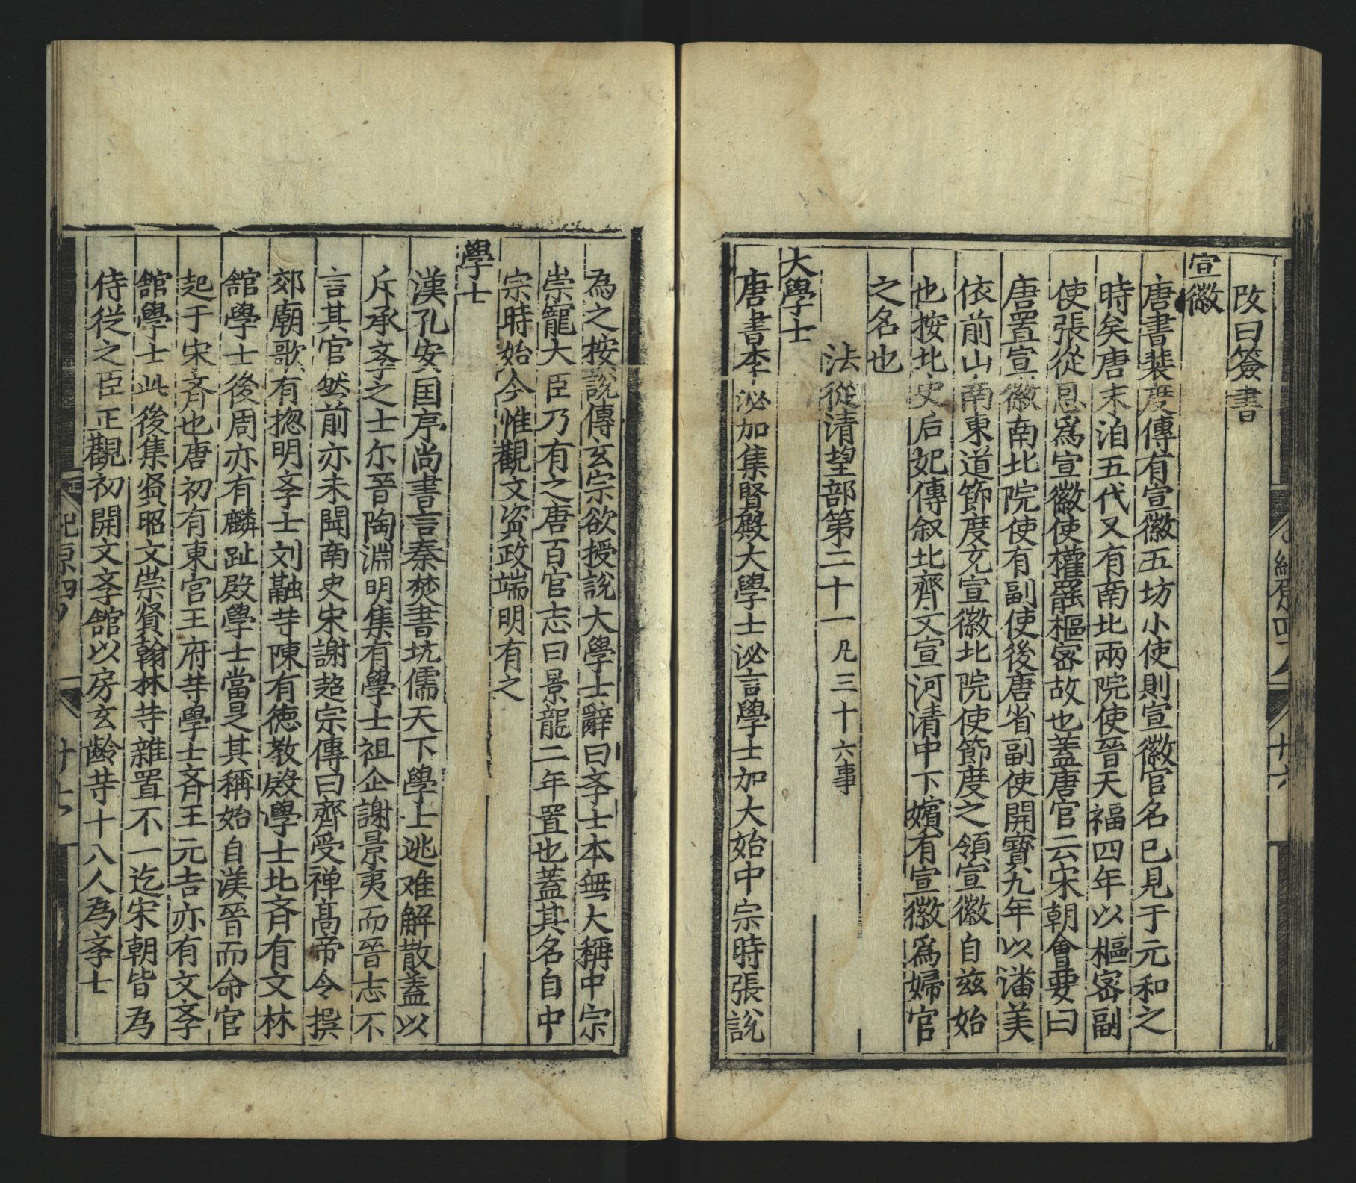 改曰簽書
宣徽
唐書裴度傳有宣徽五坊小使則宣徽官名已見于元和之
時矣唐末洎五代又有南北兩院使晉天福四年以樞宻副
使張從恩爲宣徽使權罷樞宻故也蓋唐官云宋朝會要曰
唐置宣徽南北院使有副使後唐省副使開寶九年以潘美
依前山南東道節度充宣徽北院使節度之領宣徽自兹始
也按北史后妃傳叙北齊文宣河清中下嬪有宣徽爲婦官
之名也
法從清望部第二十一凡三十六事
大學士
唐書李泌加集賢殿大學士泌言學士加大始中宗時張説
為之按説傳玄宗欲授説大學士辭曰斈士本無大稱中宗
崇寵大臣乃有之唐百官志曰景龍二年置也蓋其名自中
宗時始今惟觀文資政端明有之
學士
漢孔安国序尚書言秦焚書坑儒天下學士逃难解散蓋以
斥承斈之士尓晉陶淵明集有學士祖企謝景夷而晉志不
言其官然前亦未聞南史宋謝超宗傳曰齊受禅髙帝令撰
郊廟歌有揔明斈士刘融䓁陳有徳教殿學士北斉有文林
舘學士後周亦有麟趾殿學士當是其稱始自漢晉而命官
起于宋斉也唐初有東宫王府䓁學士斉王元吉亦有文斈
舘學士此後集贤昭文崇賢翰林䓁雜置不一迄宋朝皆為
侍從之臣正觀初開文斈舘以房玄齡䓁十八人為斈士
紀原四